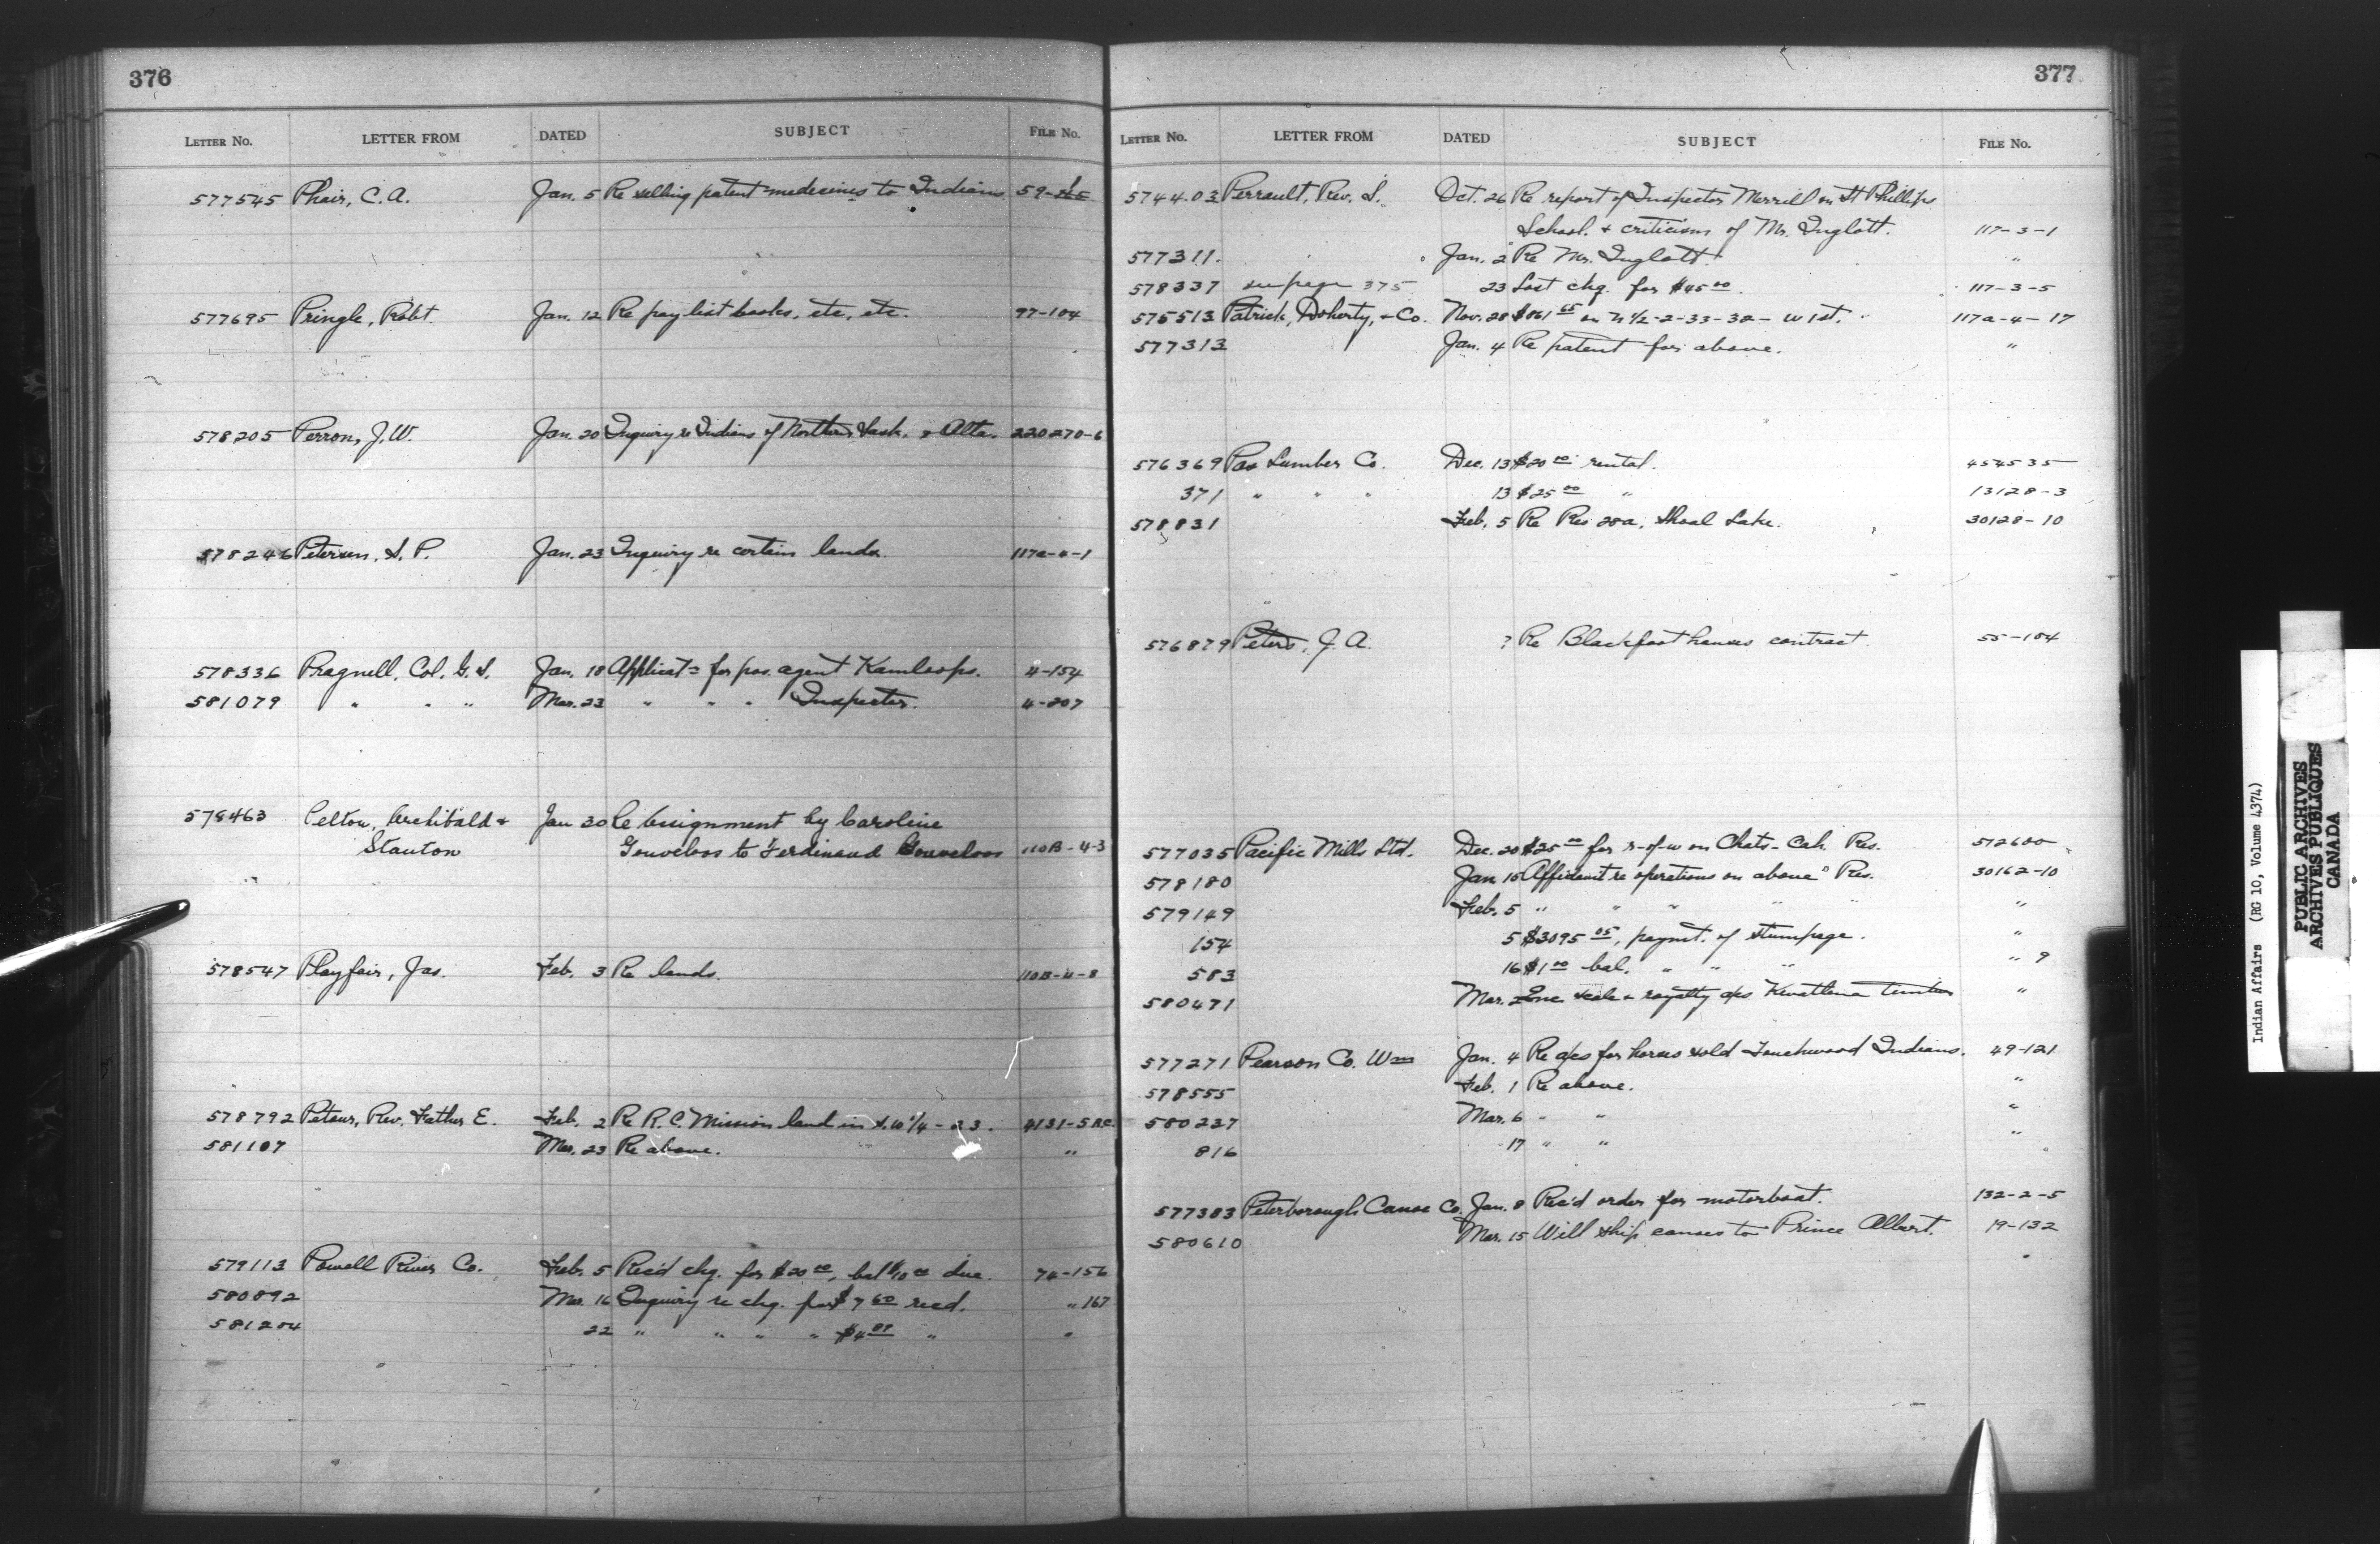 376
LETTER No. LETTER FROM DATED SUBJECT FILE No.
577545 Phair, C. A. Jan. 5 Re selling patent medecines to Indians 59-
577695 Pringle, Robt. Jan. 12 Re pay list books, etc, etc. 97-104
578205 Perron, J. W. Jan. 20 Inquiry re Indians of Northern Sask. & Alta. 220270-6
578246 Petersen, S. P. Jan. 23 Inquiry re certain lands.
578336 Pragnell, Col. G. S. Jan. 18 Applicat= for pos. agent Kamloops. 4-154
581079 " " " Mar. 23 " " " Inspector. 4-207
578463 Pelton, Archibald & Jan 30 Re Assignment by Caroline
Stanton Gouveloos to Ferdinand Gouveloos 110B-4-3
578547 Playfair, Jas. Feb. 3 Re lands. 110B-4-8
578792 Petour, Rev. Father E. Feb. 2 Re R. C. Mission land in 4131-5 B.C.
581107 Mar. 23 Re above. "
579113 Powell River Co. Feb. 5 Rec'd chq. for $20 00, bal $10 00 due. 74-156
580892 Mar. 16 Inquiry re chq. for $7 60 recd. " 167
581204 22 " " " " $4 "  "
377
LETTER No. LETTER FROM DATED SUBJECT FILE No.
574403 Perrault, Rev. S. Oct. 26 Re report of Inspector Merrill on St Phillips
School. & criticism of Mr. Inglott. 117-3-1
577311. " Jan. 2 Re Mr. Inglott. "
578337 see page 375 23 Lost chq. for $45 00. 117-3-5
575513 Patrick, Doherty, & Co. Nov. 28 $861 65 on N 1/2-2-33-32- W 1st. 117a-4-17
577313 Jan. 4 Re patent for above. "
576369 Pas Lumber Co. Dec. 13 $20 00 rental. 454535
371 " " " 13 $25 00 " 13128-3
578831 Feb. 5 Re Res 28a, Shoal Lake. 30128-10
576879 Peters, J. A. ? Re Blackfoot houses contract. 55-104
577035 Pacific Mills Ltd. Dec. 20 $25 00 for r-of-w on Chats-Cah Res. 512600
578180 Jan. 15 Affidavit re operations on above Res. 30162-10
579149 Feb. 5 " " " " " "
154 5 $3095 05, paymt. of stumpage. "
583 16 $1 00 bal. " " " " 9
580471 Mar. 2 Enc. scale & royalty a/cs Kwatlena timber "
577271 Pearson Co. Wm Jan. 4 Re a/cs for horses sold Touchwood Indians. 49-121
578555 Feb. 1 Re above. "
580237 Mar. 6 " " "
816 17 " " "
577383 Peterborough Canoe Co. Jan. 8 Rec'd order for motorboat. 132-2-5
580610 Mar. 15 Will ship canoes to Prince Albert. 19-132
Indian Affairs (RG 10, Volume 4374)
PUBLIC ARCHIVES
ARCHIVES PUBLIQUES
CANADA